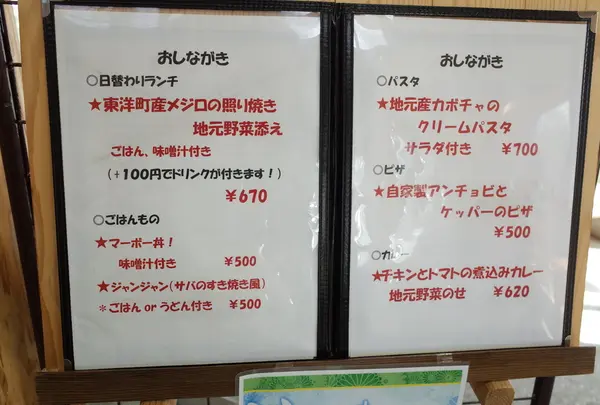 おしながき
○日替わりランチ
★東洋町産メジロの照り焼き
地元野菜添え
ごはん、味噌汁付き
(+100円でドリンクが付きます!)
¥670
○ごはんもの
★マーボー丼!
味噌汁付き ¥500
★ジャンジャン(サバのすき焼き風)
*ごはん or うどん付き ¥500
おしながき
○パスタ
★地元産カボチャの
クリームパスタ
サラダ付き ¥700
○ピザ
★自家製アンチョビと
ケッパーのピザ
¥500
○カレー
★チキンとトマトの煮込みカレー
地元野菜のせ ¥620